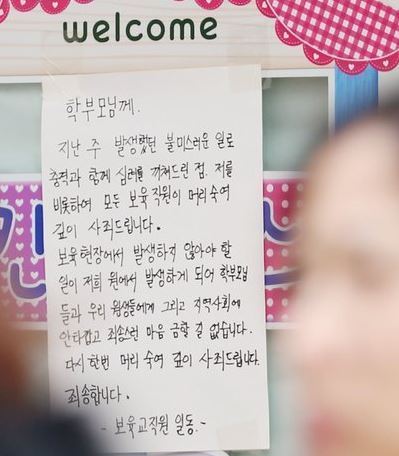 welcome
학부모님께.
지난 주 발생했던 불미스러운 일로
충격과 함께 심려를 끼쳐드린 점, 저를
비롯하여 모든 보육 직원이 머리숙여
깊이 사죄드립니다.
보육현장에서 발생하지 않아야 할
일이 저희 원에서 발생하게 되어 학부모님
들과 우리 원생들에게 그리고 지역사회에
안타깝고 죄송스런 마음 금할 길 없습니다.
다시한번 머리 숙여 깊이 사죄드립니다.
죄송합니다.
- 보육교직원 일동.-